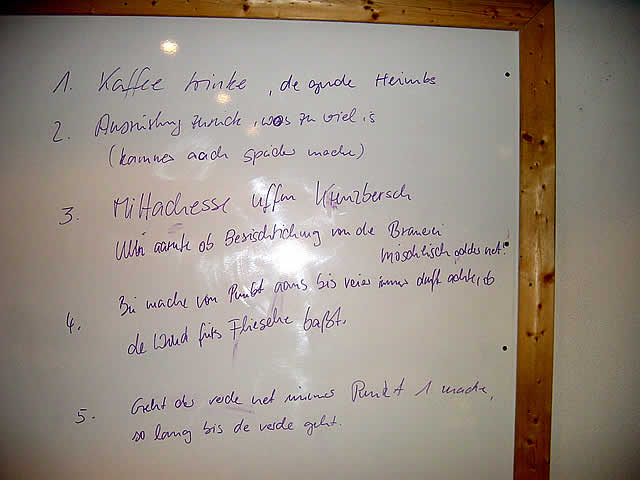 1. Kaffee trinke, de gude Heimbs
2. Ausrüstung zurück, was zu viel is
(kammer aach später mache)
3. Mittachesse uffm Kreuzbersch
ob Besischtichung von de Brauerei
möschlisch odder net!
4. Bei mache von Punkt aans bis veier immer druff achte, ob
de Wind fürs Flieschе baßt.
5. Geht des verde net immer Punkt 1 mache,
so lang bis de verde geht.